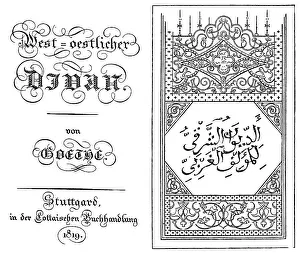 West=oestlicher
DIVAN
von
GOETHE.
Stuttgard,
in der Cottaischen Buchhandlung
1819.
الديوان الشرقي
للمؤلف الغربي